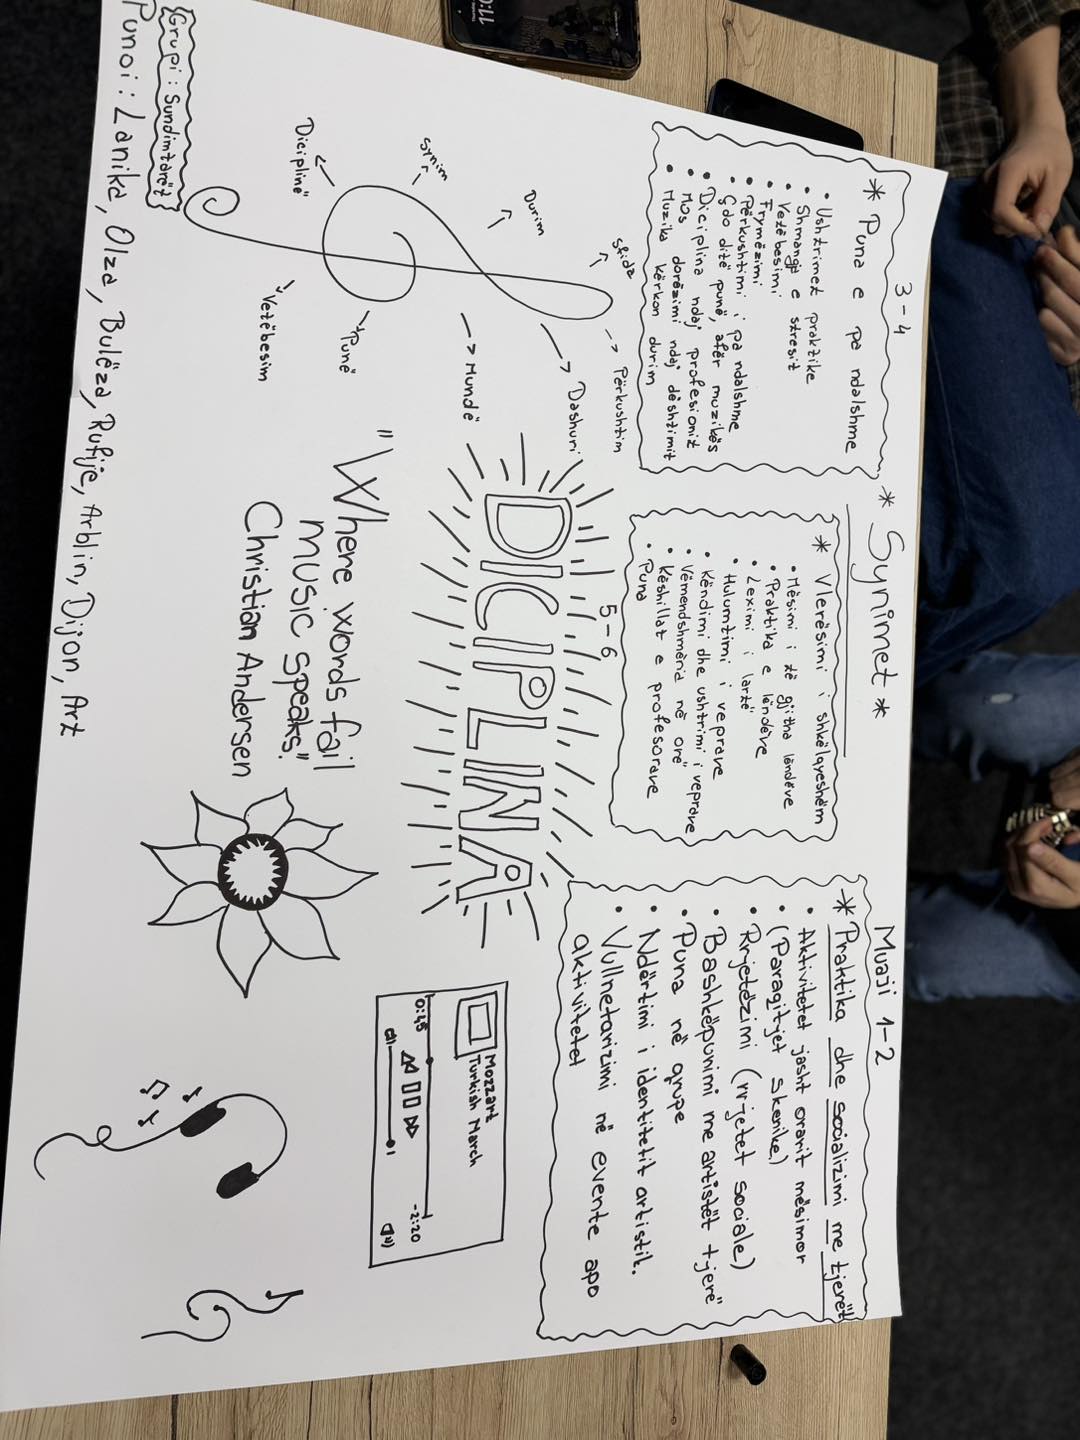 * Synimet *
3-4
* Puna e pa ndalshme
• Ushtrimet praktike
• Shmangje e stresit
• Vetëbesimi
• Frymëzimi
• Përkushtimi i pa ndalshme
• Çdo ditë punë, afër muzikës
• Diciplina ndaj profesionit
• Mos dorëzimi ndaj dështimit
• Muzika kërkon durim
* Vlerësimi i shkëlqyeshëm
• Mësimi i të gjitha lëndëve
• Praktika e lëndëve
• Leximi i lartë
• Hulumtimi i veprave
• Këndimi dhe ushtrimi i veprave
• Vëmendshmëria në orë
• Këshillat e profesorave
• Puna
5-6
Muaji 1-2
* Praktika dhe socializimi me tjerët
• Aktivitetet jasht orarit mësimor
(Paraqitjet skenike)
• Rrjetëzimi (rrjetet sociale)
• Bashkëpunimi me artistët tjerë
• Puna në grupe
• Ndërtimi i identitetit artistik.
• Vullnetarizimi në evente apo
aktivitetet
sfidz
Përkushtim
Durim
Dashuri
Synim
Mundë
Diciplinë
Punë
Vetëbesim
DICIPLINA
"Where words fail
music speaks".
Christian Andersen
Mozzart
Turkish March
0:45
-2:20
Grupi: Sundimtarët
Punoi: Lanika, Olza, Bulëza, Rufije, Arblin, Dijon, Art
11:0